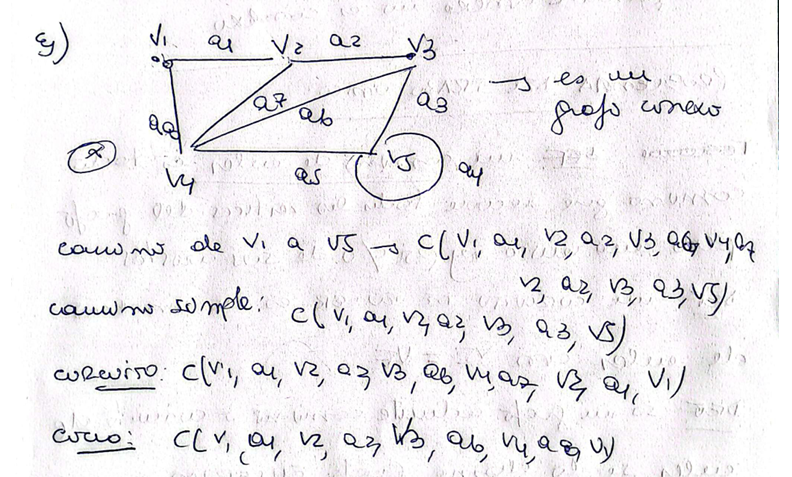 Ej)
V1 a1 V2 a2 V3
→ es un
grafo conexo
a8 a7 a6 a3
*
V4 a5 V5 a4
camino de V1 a V5 → C(V1, a1, V2, a2, V3, a6, V4, a7
V2, a2, V3, a3, V5)
camino simple: C(V1, a1, V2, a2, V3, a3, V5)
circuito: C(V1, a1, V2, a2, V3, a6, V4, a7, V2, a1, V1)
ciclo: C(V1, a1, V2, a2, V3, a6, V4, a8, V1)